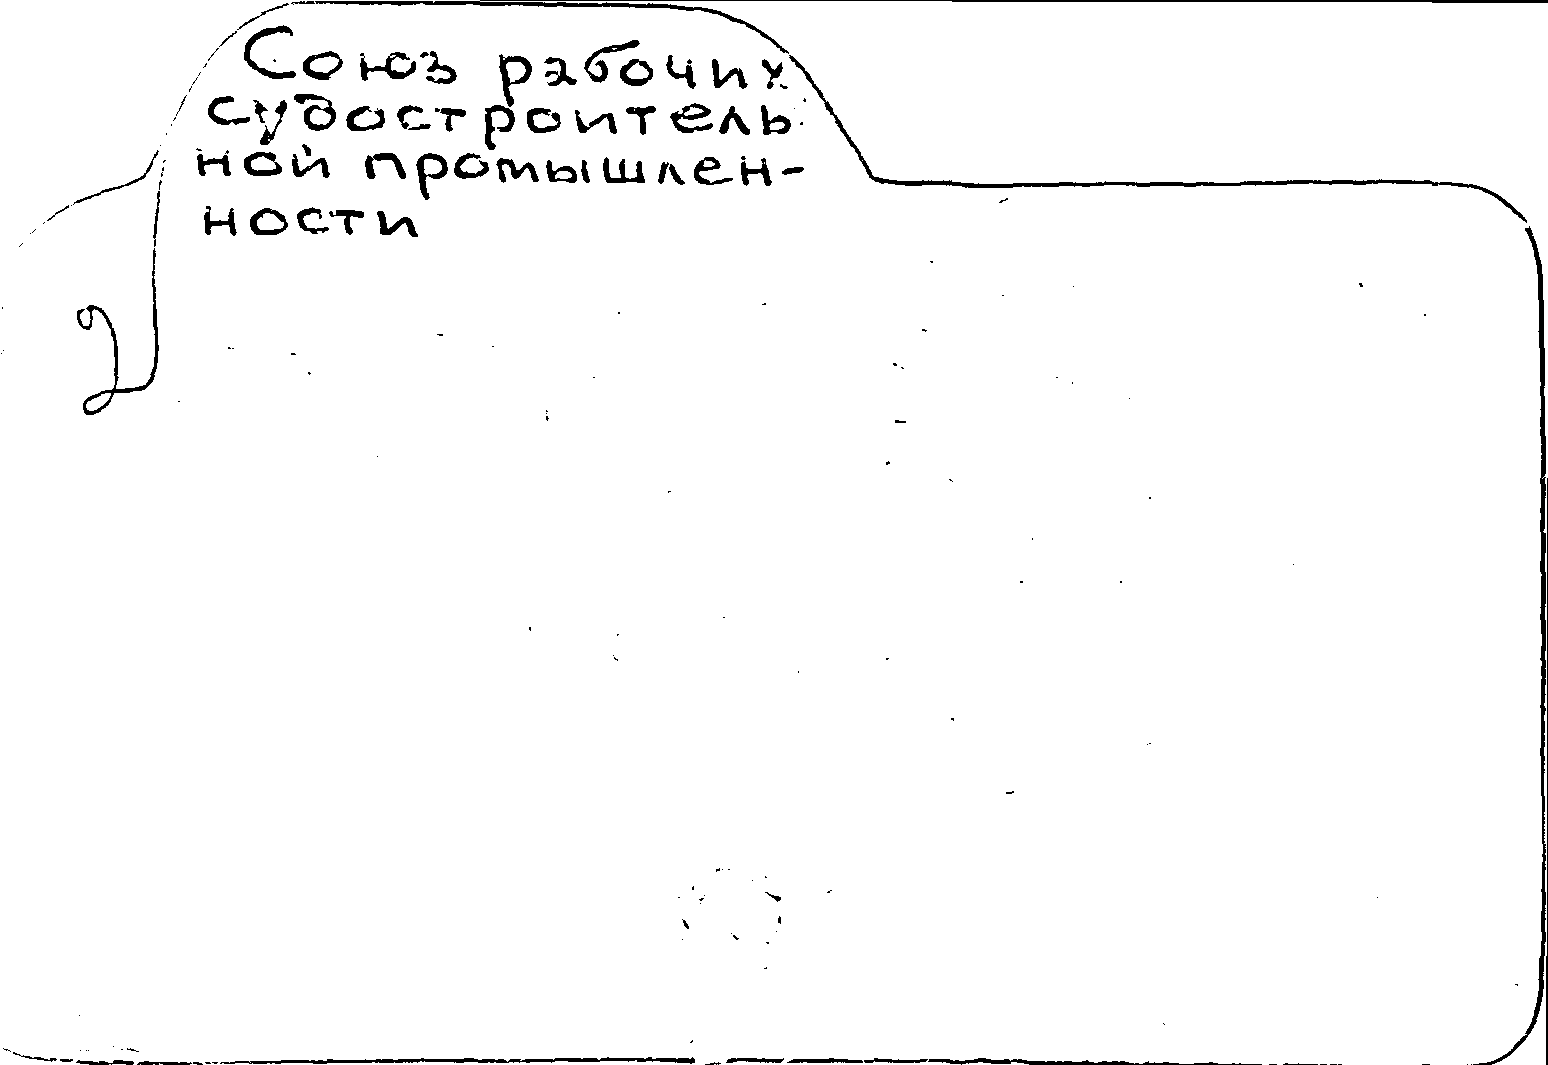 Союз рабочих
судостроитель
ной промышлен-
ности